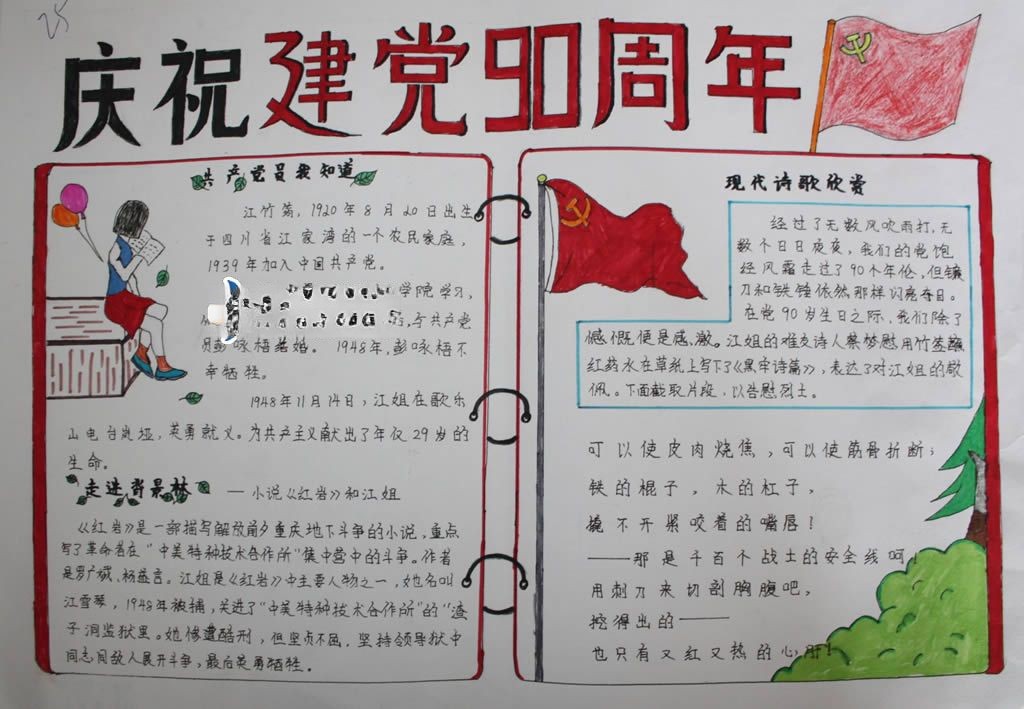 25
庆祝建党90周年
共产党员我知道
江竹筠,1920年8月20日出生
于四川省江家湾的一个农民家庭,
1939年加入中国共产党。
学院学习,
与共产党
员彭咏梧结婚。 1948年,彭咏梧不
幸牺牲。
1948年11月14日,江姐在歌乐
山电台岚垭,英勇就义。为共产主义献出了年仅29岁的
生命。
走进背景林 —小说《红岩》和江姐
《红岩》是一部描写解放前夕重庆地下斗争的小说,重点
写了革命者在“中美特种技术合作所”集中营中的斗争。作者
是罗广斌、杨益言。江姐是《红岩》中主要人物之一,她名叫
江雪琴,1948年被捕,关进了“中美特种技术合作所”的“渣
子洞监狱里。她惨遭酷刑,但坚贞不屈,坚持领导狱中
同志同敌人展开斗争,最后英勇牺牲。
现代诗歌欣赏
经过了无数风吹雨打,无
数个日日夜夜,我们的党饱
经风霜走过了90个年伦,但镰
刀和铁锤依然那样闪亮夺目。
在党90岁生日之际,我们除了
感慨便是感激。江姐的难友诗人蔡梦慰用竹签蘸
红药水在草纸上写下了《黑牢诗篇》,表达了对江姐的敬
佩。下面截取片段,以告慰烈士。
可以使皮肉烧焦,可以使筋骨折断;
铁的棍子,木的杠子,
撬不开紧咬着的嘴唇!
——那是千百个战士的安全线呵!
用刺刀来切剖胸腹吧,
挖得出的——
也只有又红又热的心肝!